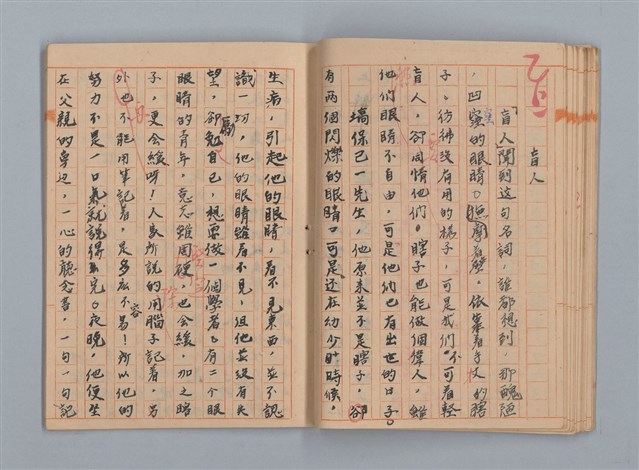 盲人
盲人聞到這句名詞，誰都想到，那醜陋
，凹窪的眼睛。撫摩着壁，依靠着手杖的瞎
子，彷彿沒有用的樣子，可是我們不可看輕
盲人，卻同情他們。瞎子也能做個偉人，雖
他們眼睛不自由，可是他們也有出世的日子。
塙保己一先生，他原來並不是瞎子，卻
有兩個閃爍的眼睛。可是还在幼少時候，
生病，引起他的眼睛，看不見東西，並不認
識一切，他的眼睛雖看不見，但他並沒有失
望，卻勉勵自己，想要做一個學者。有二个眼
眼睛的青年，意志雖固硬，也会緩，加之瞎
子，更会緩呀！人家所說的用腦子記着，另
外也不能用筆記着，是多么不容易！所以他的
努力不是一口氣就說得完。夜晚，他便坐
在父親的旁边，一心的聽念書，一句一句記